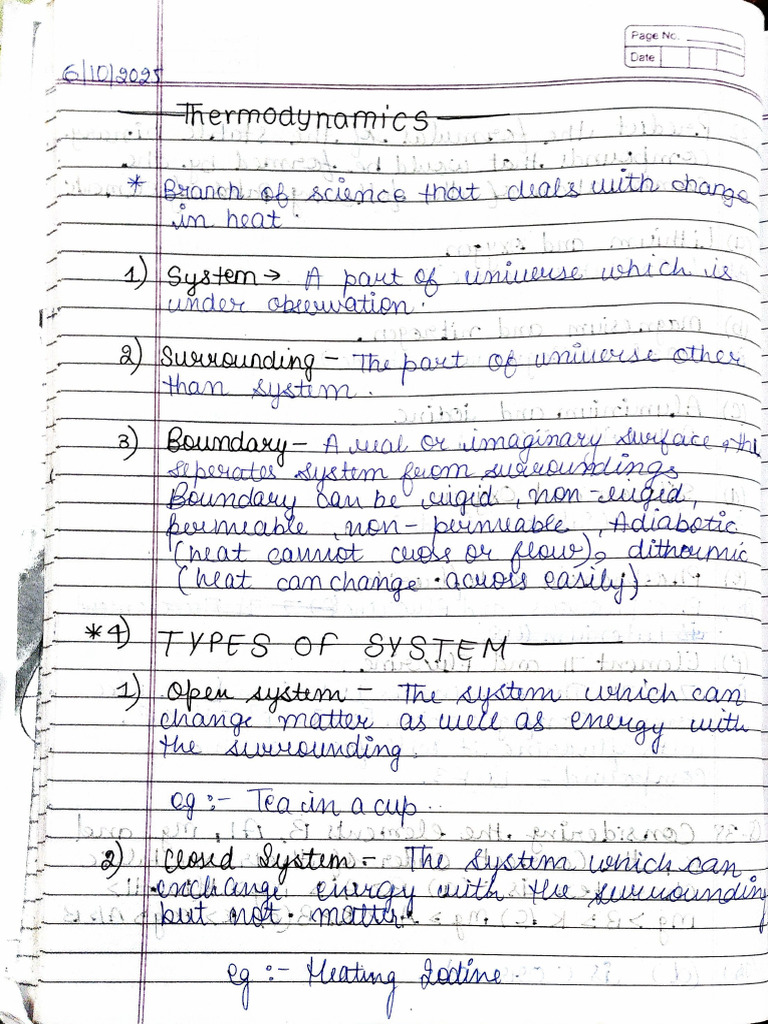 Page No.
Date
6/10/2025
Thermodynamics
* Branch of science that deals with change
in heat.
1) System → A part of universe which is
under observation.
2) Surrounding – The part of universe other
than system.
3) Boundary – A real or imaginary surface, tha
seperates system from surroundings
Boundary can be rigid, non-rigid,
permeable, non-permeable, Adiabatic
(heat cannot cross or flow), dithermic
(heat can change across easily)
*4) TYPES OF SYSTEM
1) Open system – The system which can
change matter as well as energy with
the surrounding
eg :- Tea in a cup.
2) Closed System – The system which can
exchange energy with the surrounding
but not matter.
eg :- Heating Iodine